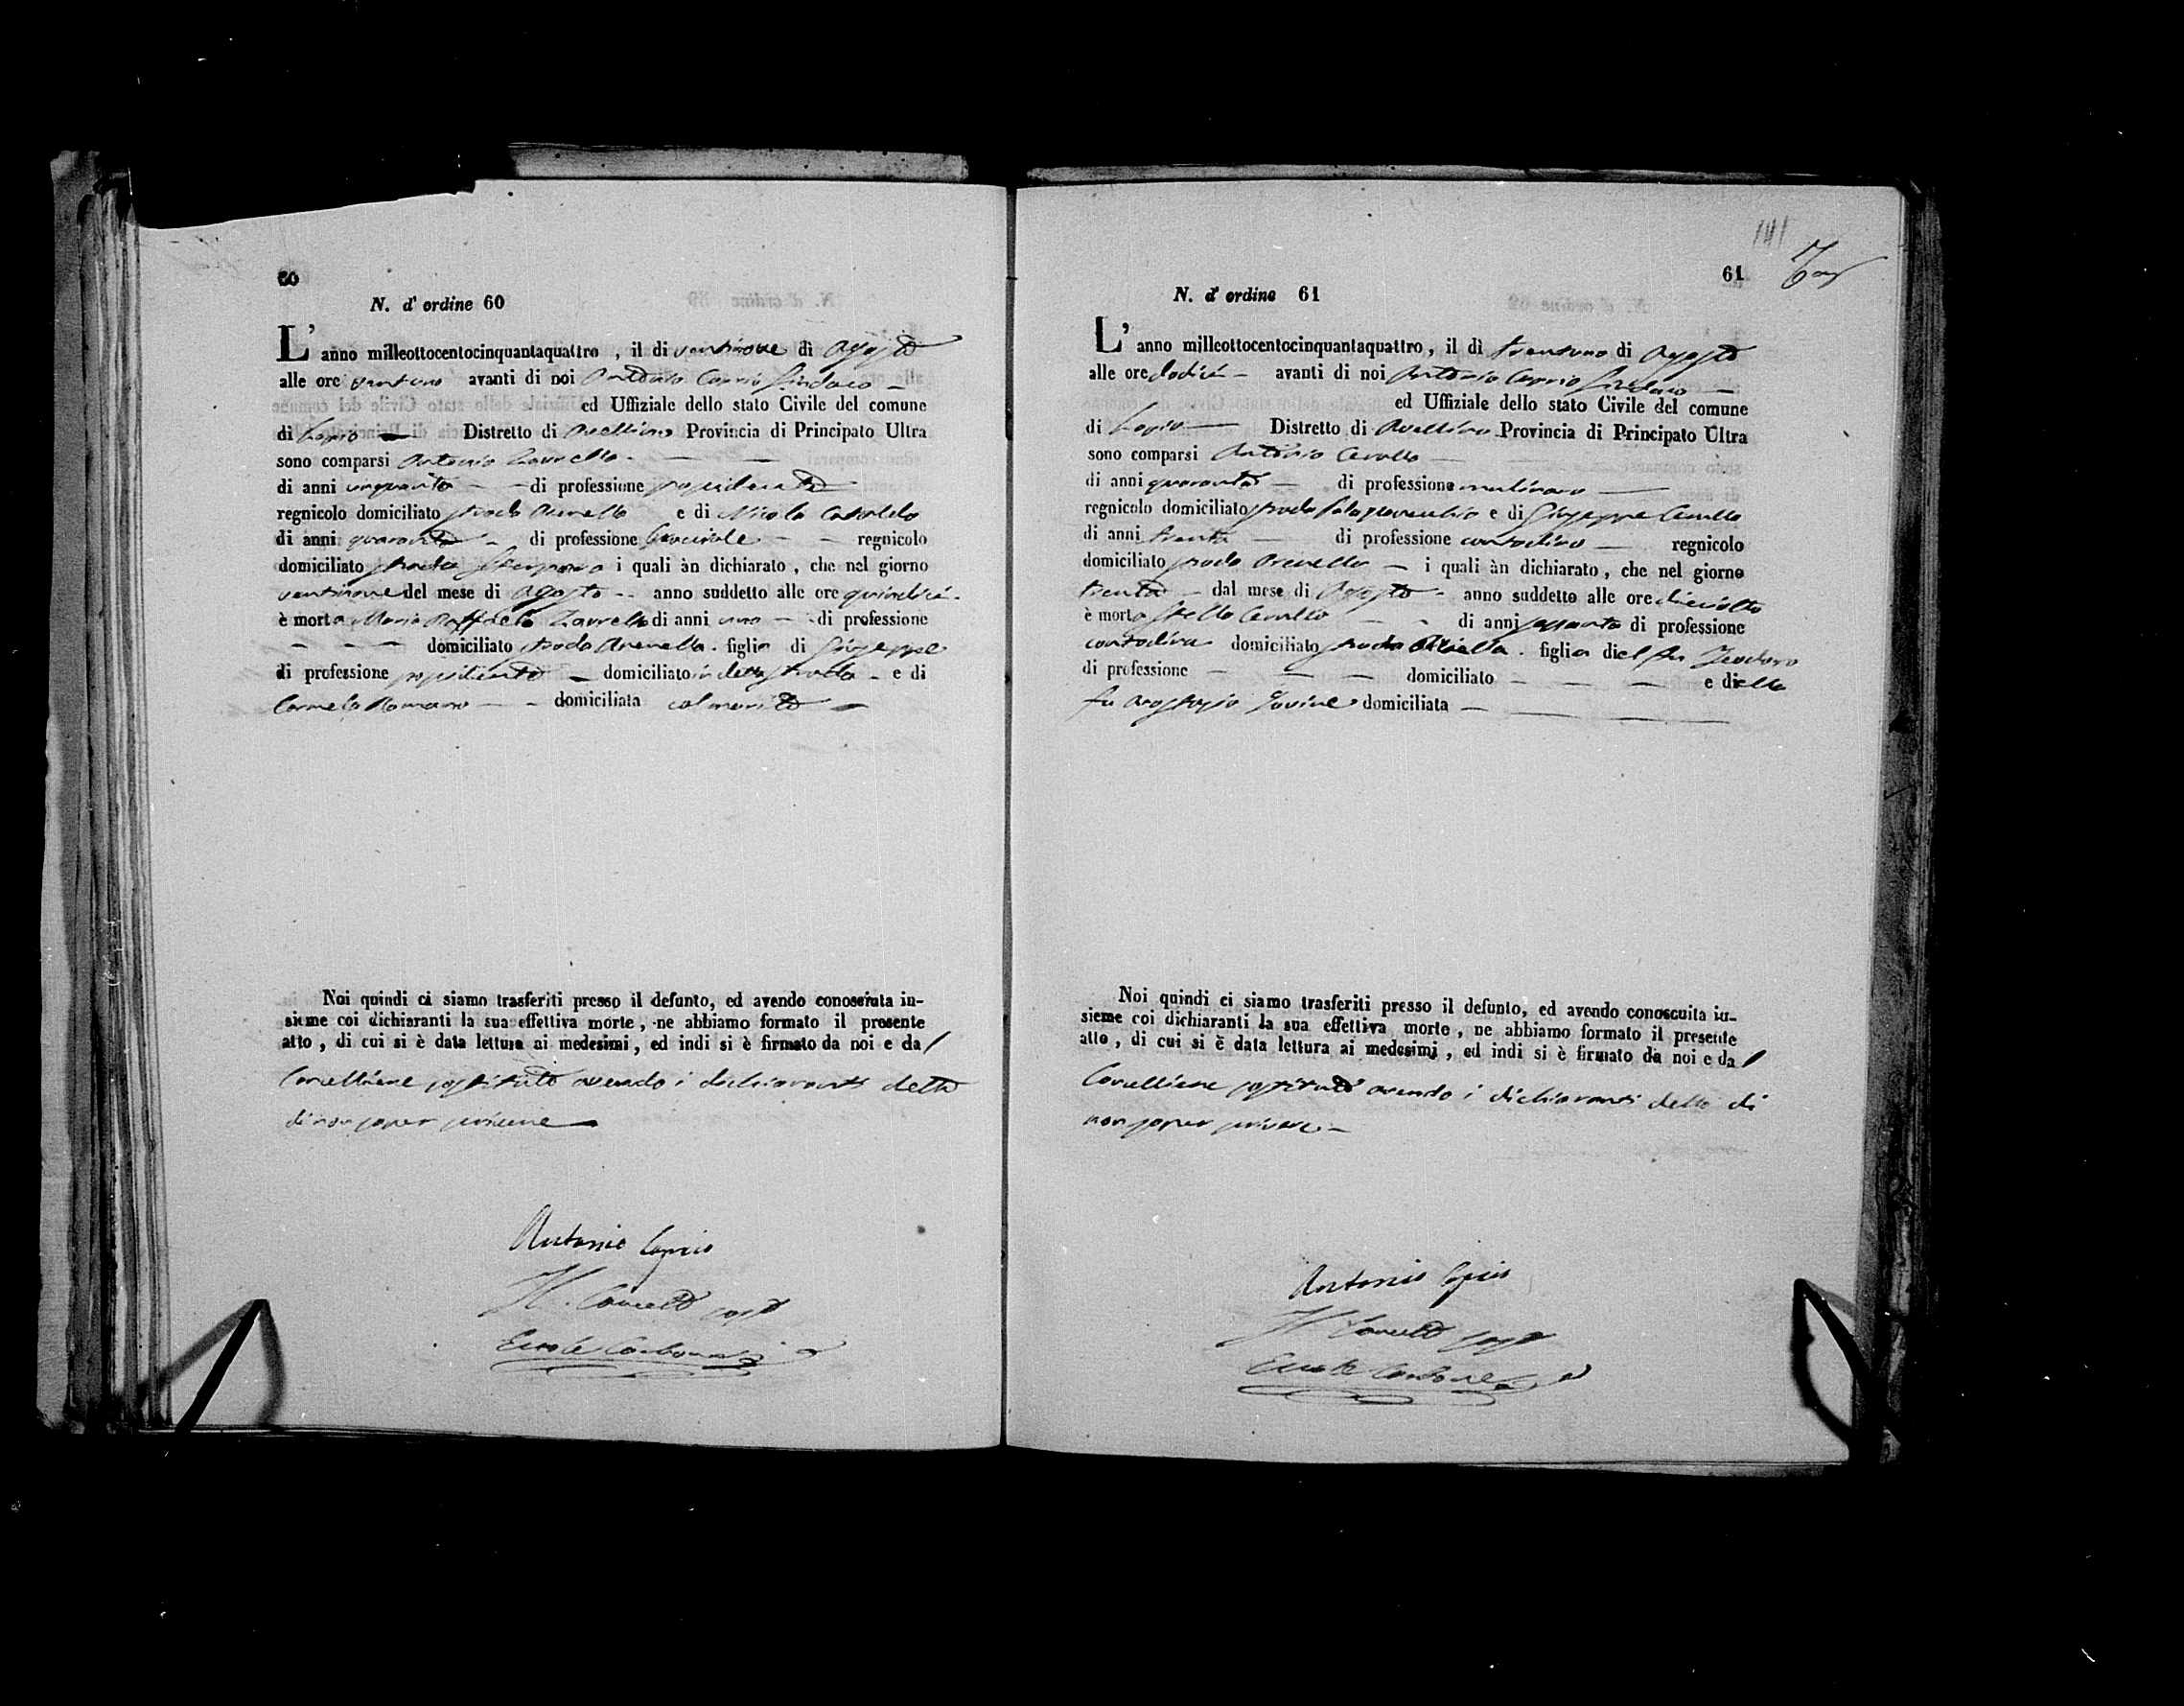 60
N. d' ordine 60
L' anno milleottocentocinquantaquattro, il di ventinove di Agosto
alle ore ventuno avanti di noi Antonio Caprio Sindaco —
ed Uffiziale dello stato Civile del comune
di Lapio — Distretto di Avellino Provincia di Principato Ultra
sono comparsi Antonio
di anni cinquanta — di professione proprietario
regnicolo domiciliato strada Arenella e di Nicola
di anni quaranta — di professione — regnicolo
domiciliato strada i quali àn dichiarato, che nel giorno
ventinove del mese di Agosto — anno suddetto alle ore quindici —
è morta Maria Raffaela di anni uno — di professione
— domiciliato strada Arenella. figlia di Giuseppe
di professione — domiciliato in detta strada — e di
Carmela Romano — domiciliata col marito —
Noi quindi ci siamo trasferiti presso il defunto, ed avendo conosciuta in-
sieme coi dichiaranti la sua effettiva morte, ne abbiamo formato il presente
atto, di cui si è data lettura ai medesimi, ed indi si è firmato da noi e da l
Cancelliere sostituto avendo i dichiaranti detto
di non saper scrivere —
Antonio Caprio
Ercole Carbone
141
61
N. d' ordine 61
L' anno milleottocentocinquantaquattro, il dì trentuno di Agosto
alle ore dodici — avanti di noi Antonio Caprio Sindaco —
ed Uffiziale dello stato Civile del comune
di Lapio — Distretto di Avellino Provincia di Principato Ultra
sono comparsi Antonio Carullo —
di anni quaranta — di professione mulinaro —
regnicolo domiciliato strada e di Giuseppe Carullo
di anni trenta — di professione contadino — regnicolo
domiciliato strada Arenella — i quali àn dichiarato, che nel giorno
trenta — dal mese di Agosto — anno suddetto alle ore dieciotto
è morta Stella Carullo — di anni sessanta di professione
contadina domiciliato strada figlia di el fu Teodoro
di professione — domiciliato — e di ella
fu domiciliata —
Noi quindi ci siamo trasferiti presso il defunto, ed avendo conoscuita in-
sieme coi dichiaranti la sua effettiva morte, ne abbiamo formato il presente
atto, di cui si è data lettura ai medesimi, ed indi si è firmato da noi e da l
Cancelliere sostituto avendo i dichiaranti detto di
non saper scrivere —
Antonio Caprio
Ercole Carbone